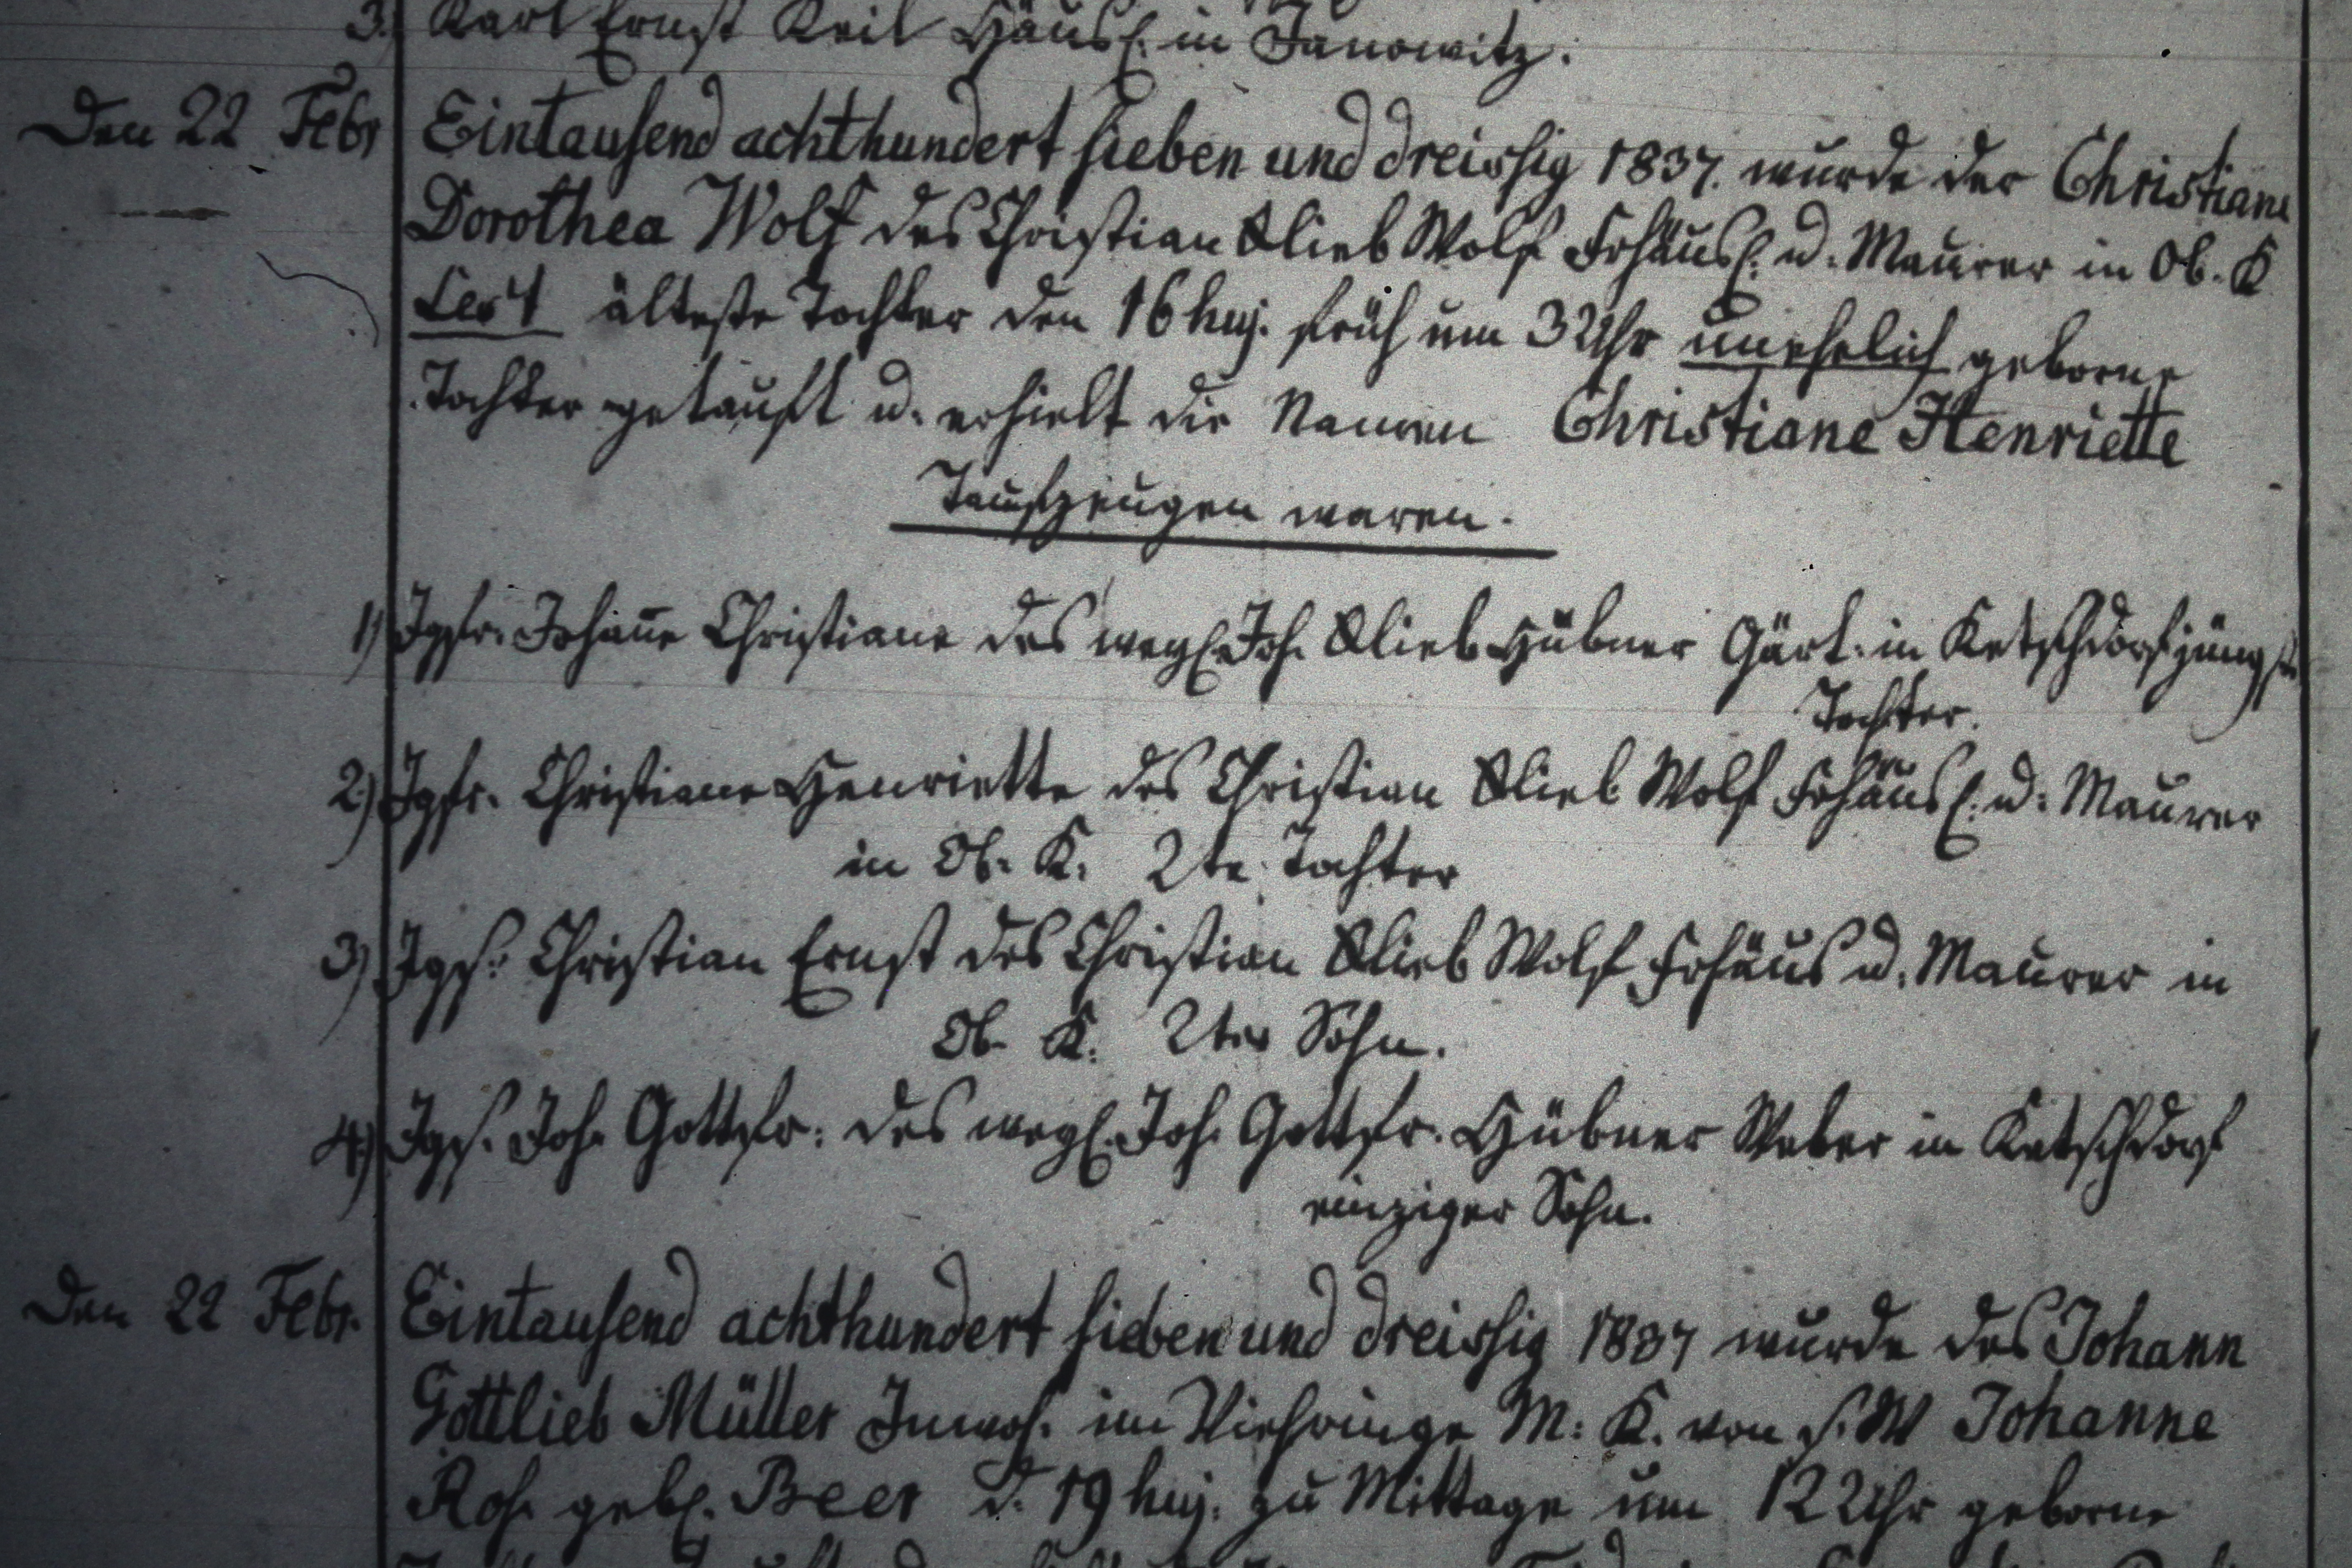 3. Karl Ernst Keil Häusl. in Janowitz.
Den 22 Febr Eintausend achthundert sieben und dreissig 1837. wurde der Christiane
Dorothea Wolf des Christian Glieb Wolf Frhäusl. u. Maurer in Ob. K
ältester Tochter den 16 huj. früh um 3 Uhr unehelich geborne
Tochter getauft u. erhielt die Namen Christiane Henriette
Taufzeugen waren.
1) Jgfr. Johanne Christiane des wegl. Joh. Glieb Hübner Gärt. in Ketschdorf jüngste
Tochter.
2) Jgfr. Christiane Henriette des Christian Glieb Wolf Frhäusl. u. Maurer
in Ob. K. 2te Tochter
3) Jggs. Christian Ernst des Christian Glieb Wolf Frhäus u. Maurer in
Ob. K. 2ter Sohn.
4) Jggs. Joh. Gottfr. des wegl. Joh. Gottfr. Hübner Weber in Ketschdorf
einziger Sohn.
Den 22 Febr. Eintausend achthundert sieben und dreissig 1837 wurde des Johann
Gottlieb Müller Inwoh. im Viehringe M: K. von s. W Johanne
Ros. gebl. Beer d. 19 huj. zu Mittage um 12 Uhr geborne